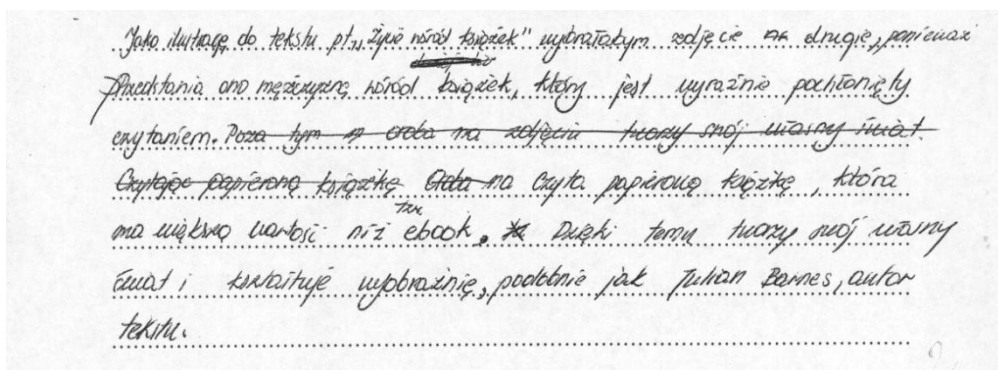 Jako ilustrację do tekstu pt. „Życie wśród książek" wybrałabym zdjęcie drugie, ponieważ
przedstawia ono mężczyznę wśród książek, który jest wyraźnie pochłonięty
czytaniem. Poza tym osoba na zdjęciu tworzy swój własny świat.
Czytając papierową książkę Osoba na Czyta papierową książkę, która
ma większą wartość niż tzw. ebook. Dzięki temu tworzy swój własny
świat i kształtuje wyobraźnię, podobnie jak Julian Barnes, autor
tekstu.